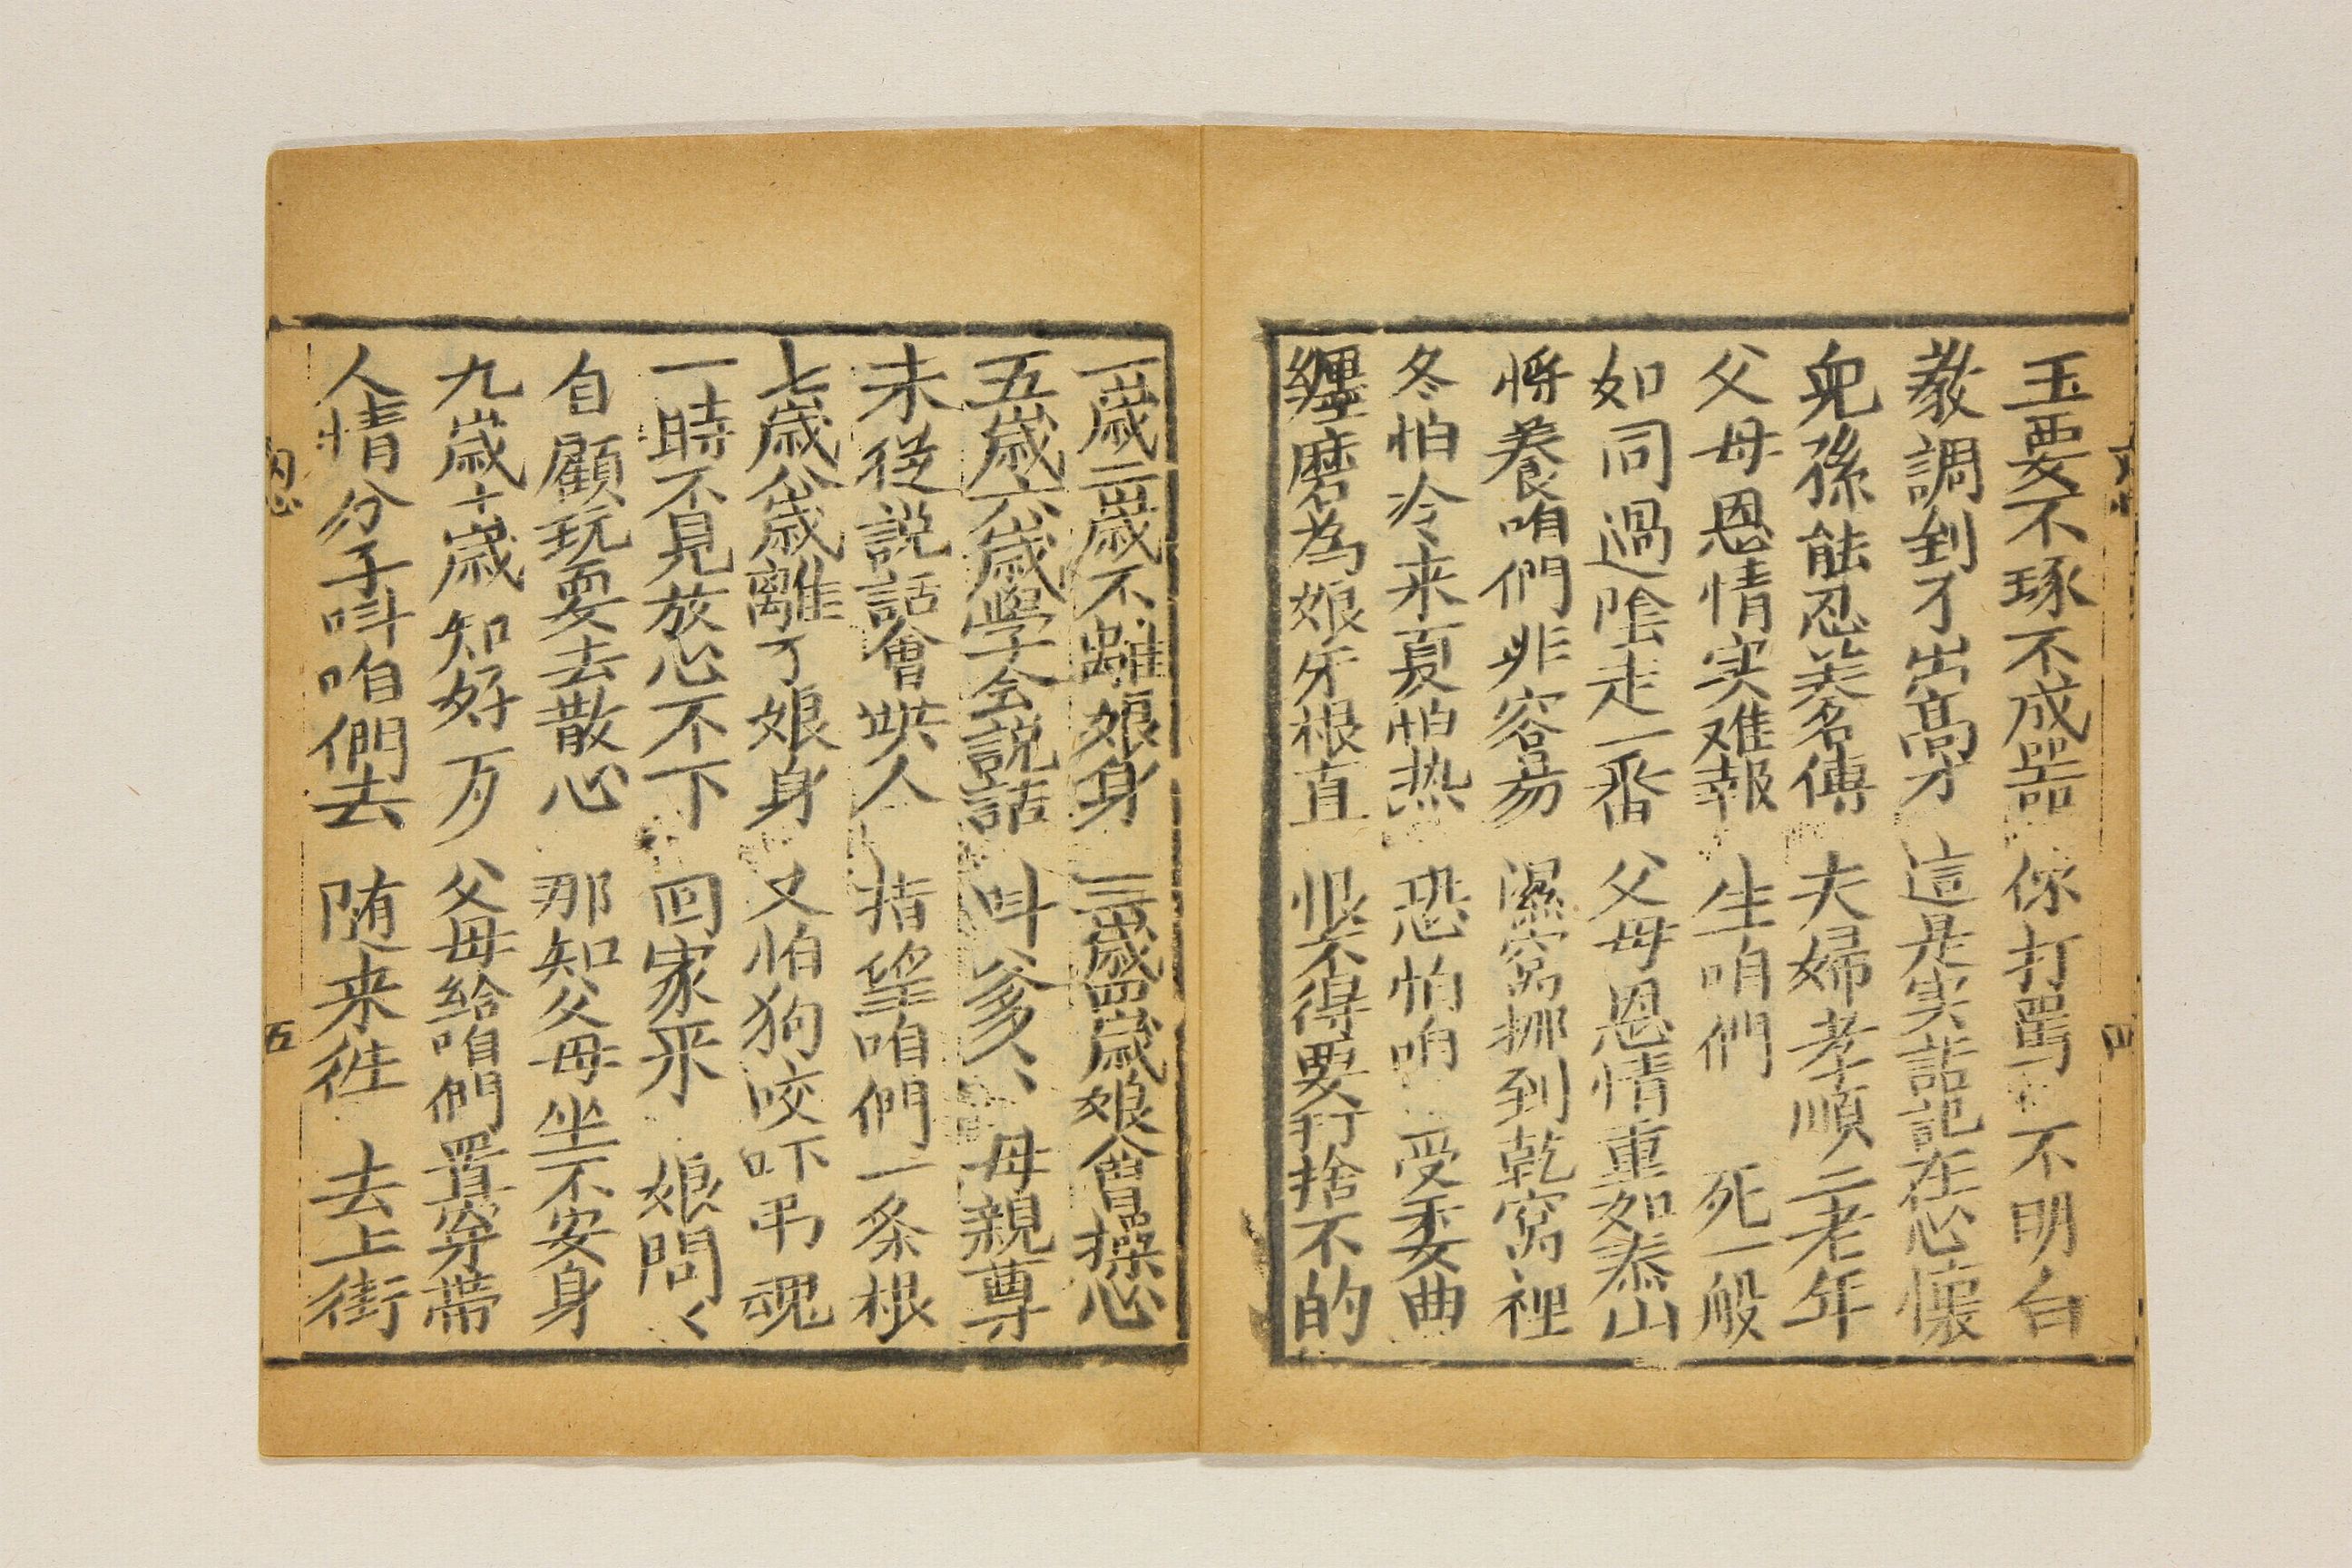 玉要不琢不成器 你打罵 不明白
教調到才出高才 這是实話記在心懷
児孫能忍羙名傳 夫婦孝順二老年
父母恩情实难報 生咱們 死一般
如同過陰走一番 父母恩情重如泰山
将養咱們非容易 濕窩挪到乾窩裡
冬怕冷来夏怕热 恐怕咱 受委曲
纏磨為娘牙根直 恨不得要打捨不的
四
一歲二歲不離娘身 三歲四歲娘會操心
五歲六歲學会説話 呌爹、母親尊
未從説話會哄人 指望咱們一条根
七歲八歲離了娘身 又怕狗咬吓弔魂
一時不見放心不下 回家来 娘問々
自顧玩耍去散心 那知父母坐不安身
九歲十歲知好歹 父母給咱們置穿帶
人情分子呌咱們去 随来徃 去上街
五